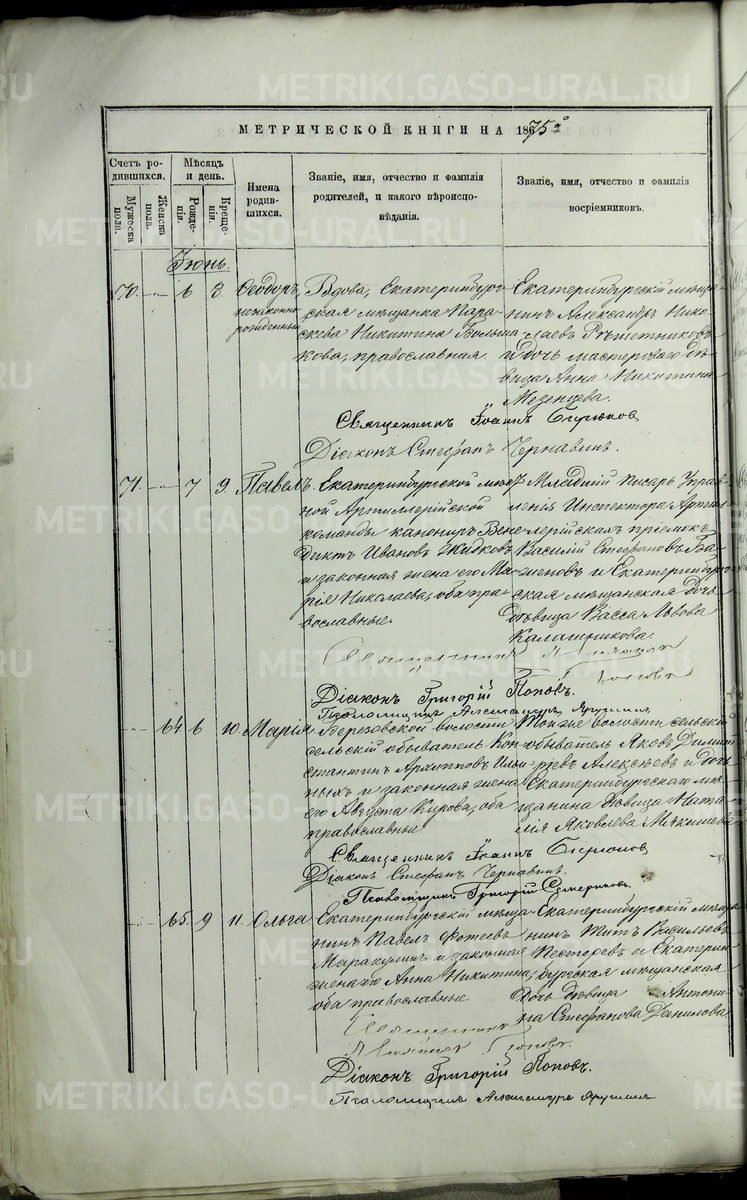 METRIKI.GASO-URAL.RU
МЕТРИЧЕСКОЙ КНИГИ НА 1875 г
Счетъ родившихся.
Мужеска пола.
Женска пола.
Мѣсяцъ и день.
Рожденія.
Крещенія.
Имена родившихся.
Званіе, имя, отчество и фамилія родителей, и какого вѣроисповѣданія.
Званіе, имя, отчество и фамилія воспріемниковъ.
Іюнь.
70. 6 8. Ѳеодоръ,
незаконно
рожденный
Вдова, Екатеринбург-
ская мѣщанка Пара-
скева Никитина Больша
кова, православная.
Екатеринбургскій мѣща-
нинъ Александръ Нико-
лаевъ Рѣшетниковъ
и дочь мастероваго дѣ-
вица Анна Никитина
Мезенцева.
Священникъ Іоаннъ Бирюков
Діаконъ Стефанъ Чернавинъ.
71. 7 9. Павелъ.
Екатеринбургской мѣст-
ной Артиллерійской
команды канониръ Вене-
диктъ Ивановъ Жидковъ
и законная жена его Ма-
рія Николаева, оба пра-
вославные.
Младшій писарь Управ-
ленія Инспектора Артил-
лерійскихъ пріемокъ
Василій Стефановъ Ба-
женовъ и Екатеринбург-
ская мѣщанская дочь
дѣвица Васса Львова
Калашникова.
Священникъ
Поповъ
Діаконъ Григорій Поповъ.
Псаломщикъ Александръ
64 6 10. Марія
Березовской волости
сельскій обыватель Кон-
стантинъ Архиповъ Ильи-
ныхъ и законная жена
его Августа Кирова, оба
православные
Той же волости сельскій
обыватель Яковъ Димит-
ріевъ Алексѣевъ и дочь
Екатеринбургскаго мѣ-
щанина дѣвица Ната-
лія Яковлева Мякишева
Священникъ Іоаннъ Бирюков
Діаконъ Стефанъ Чернавинъ.
Псаломщикъ Григорій
65. 9 11. Ольга
Екатеринбургскій мѣща-
нинъ Павелъ Фотеевъ
Маракулинъ и законная
жена его Анна Никитина,
оба православные
Екатеринбургскій мѣща-
нинъ Титъ Васильевъ
Несторовъ и Екатерин-
бургская мѣщанская
дочь дѣвица Антони-
на Стефанова Данилова
Священникъ
Поповъ.
Діаконъ Григорій Поповъ.
Псаломщикъ Александръ